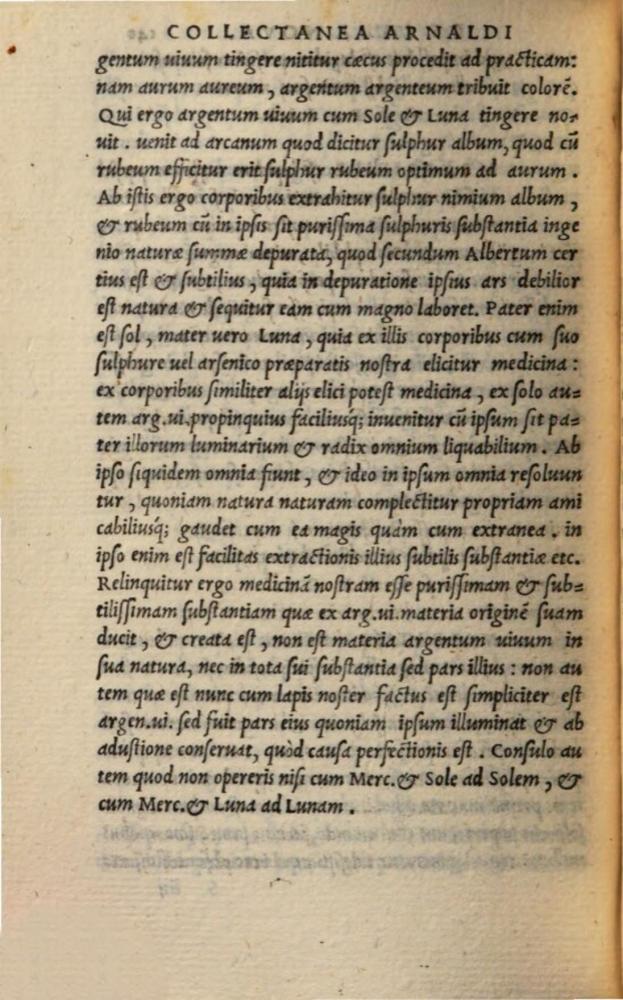 COLLECTANEA ARNALDI
gentum uiuum tingere nititur cæcus procedit ad practicam:
nam aurum aureum, argentum argenteum tribuit colorē.
Qui ergo argentum uiuum cum Sole & Luna tingere no-
uit . uenit ad arcanum quod dicitur ſulphur album, quod cū
rubeum efficitur erit ſulphur rubeum optimum ad aurum .
Ab iſtis ergo corporibus extrahitur ſulphur nimium album ,
& rubeum cū in ipſis ſit puriſſima ſulphuris ſubſtantia inge
nio naturæ ſummæ depurata, quod ſecundum Albertum cer
tius eſt & ſubtilius , quia in depuratione ipſius ars debilior
eſt natura & ſequitur eam cum magno laboret. Pater enim
eſt ſol , mater uero Luna , quia ex illis corporibus cum ſuo
ſulphure uel arſenico præparatis noſtra elicitur medicina :
ex corporibus ſimiliter alijs elici poteſt medicina , ex ſolo au=
tem arg.ui.propinquius faciliusq́; inuenitur cū ipſum ſit pa=
ter illorum luminarium & radix omnium liquabilium . Ab
ipſo ſiquidem omnia fiunt , & ideo in ipſum omnia reſoluun
tur , quoniam natura naturam complectitur propriam ami
cabiliusq́; gaudet cum ea magis quàm cum extranea . in
ipſo enim eſt facilitas extractionis illius ſubtilis ſubſtantiæ etc.
Relinquitur ergo medicinā noſtram eſſe puriſſimam & ſub=
tiliſſimam ſubſtantiam quæ ex arg.ui.materia originē ſuam
ducit , & creata eſt , non eſt materia argentum uiuum in
ſua natura, nec in tota ſui ſubſtantia ſed pars illius : non au
tem quæ eſt nunc cum lapis noſter factus eſt ſimpliciter eſt
argen.ui. ſed fuit pars eius quoniam ipſum illuminat & ab
aduſtione conſeruat, quòd cauſa perfectionis eſt . Conſulo au
tem quod non opereris niſi cum Merc.& Sole ad Solem , &
cum Merc.& Luna ad Lunam .